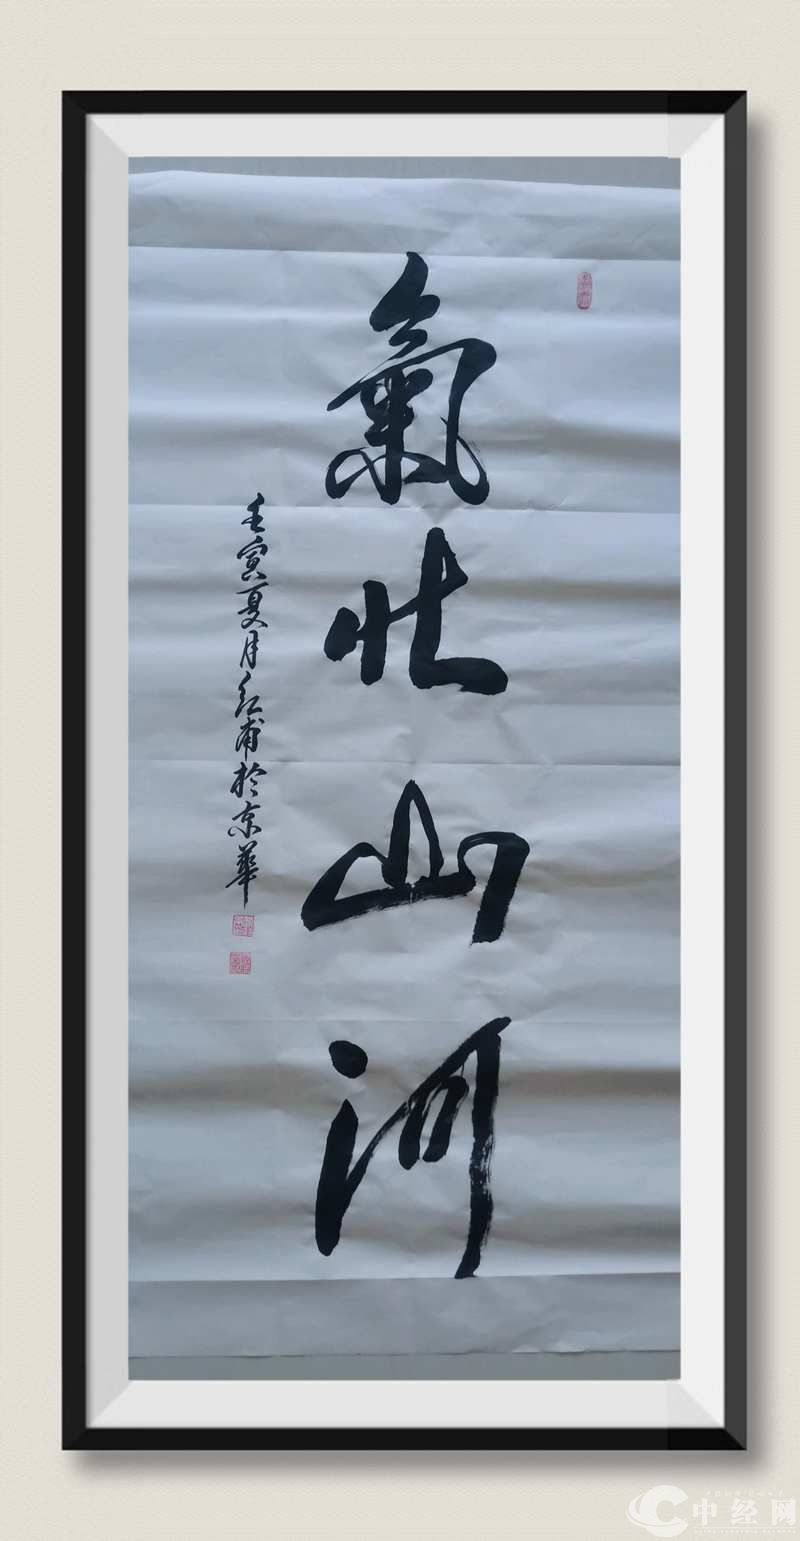 氣壯山河
壬寅夏月红甫於京華
中经网